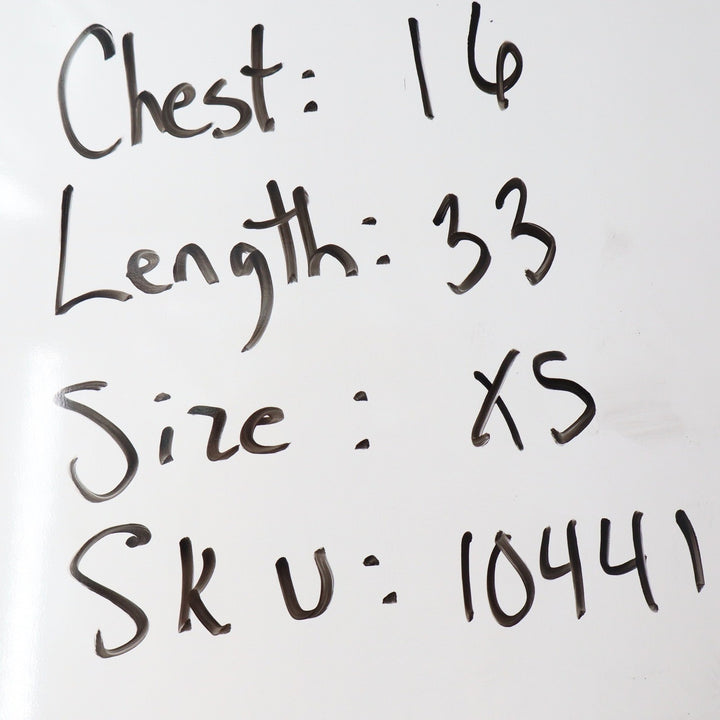 Chest: 16
Length: 33
Size: XS
SKU: 10441